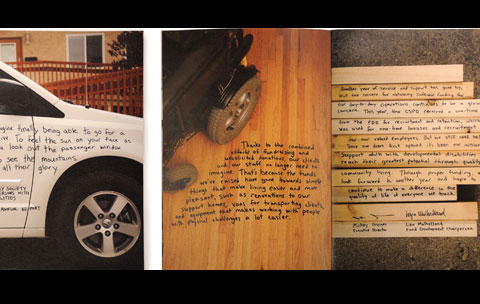 gine finally being able to go for a
ve. To feel the sun on your face as
look out the passenger window
see the mountains
all their glory.
SOCIETY
PERSONS WITH
ILITIES
ANNUAL REPORT
Thanks to the combined
efforts of fundraising and
unsolicited donations, our clients
and our staff no longer need to
imagine. That's because the funds
we've raised have gone towards simple
things that make living easier and more
pleasant, such as renovations to our
support homes, vans for transporting clients,
and equipment that makes working with people
with physical challenges a lot easier.
Another year of service and support has gone by,
but our concern for obtaining sufficient funding for
our day-to-day operations continues to be a
concern. This year, the CSPD received a one-time
from the PDD for recruitment and retention, which
was used for one-time bonuses and recruitment.
our valued employees. But we still need
support adults with developmental disabilities
reach their greatest potential through quality
community living. Through proper funding, we
look forward to another year and hope to
continue to make a difference in the
quality of life of everyone we touch.
Mickey Greiner
Executive Director
Lisa Mulholland
Fund Development Chairperson